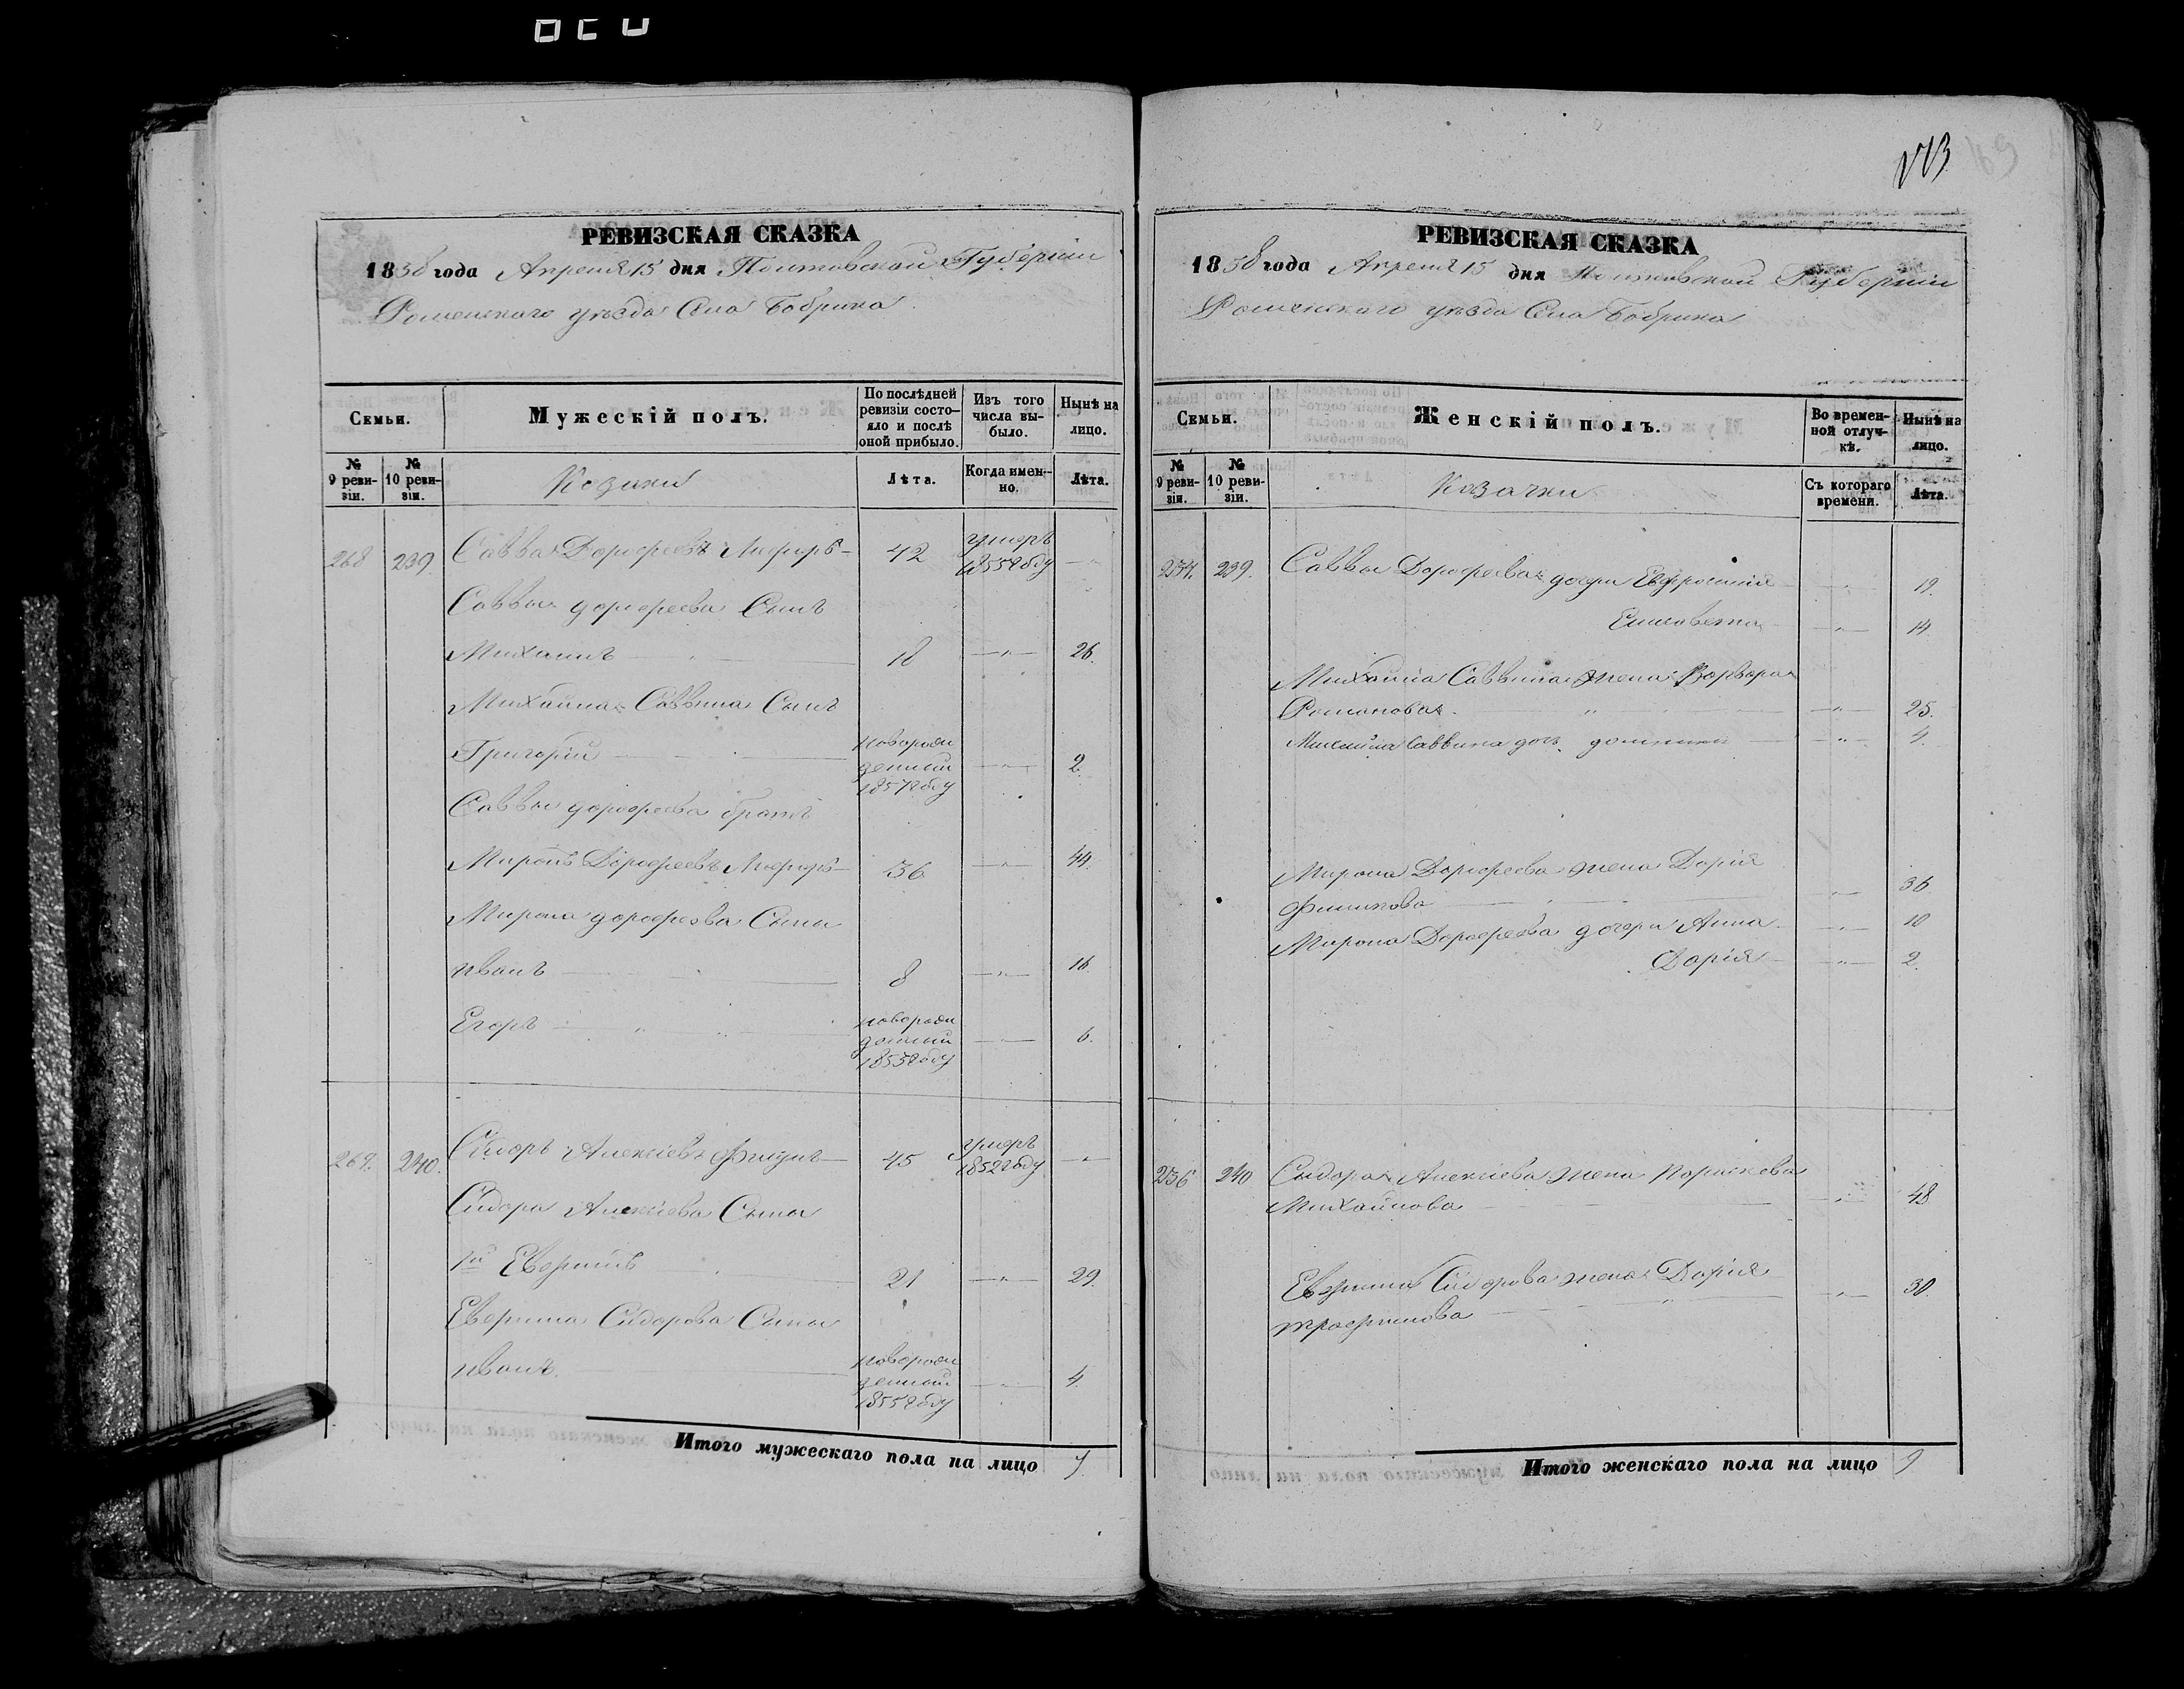 РЕВИЗСКАЯ СКАЗКА
1858 года Апреля 15 дня Полтавской Губернии
Роменского уезда Села Бобрика
Семьи.
Мужескій полъ.
По послѣдней ревизіи состояло и послѣ оной прибыло.
Изъ того числа выбыло.
Нынѣ на лицо.
№ 9 ревизіи.
№ 10 ревизіи.
Козаки
Лѣта.
Когда именно.
Лѣта.
268 239. Савва Дорофеевъ 42 умеръ 1855 году
Саввы дорофеева Сынъ
Михаилъ 18 26.
Михаила Саввина Сынъ
Григорій новорожденный 1857 году 2.
Саввы дорофеева братъ
Миронъ Дорофеевъ 36 44.
Мирона дорофеева Сыны
иванъ 8 16.
Егоръ новорожденный 6.
269. 240. Сидоръ Алексіевъ 45 умеръ 1852 году
Сидора Алексіева Сыны
1й 21 29.
Сидорова Сынъ
иванъ новорожденный 1855 году 4.
Итого мужескаго пола на лицо 7.
169
РЕВИЗСКАЯ СКАЗКА
1858 года Апреля 15 дня Полтавской Губерніи
Роменского уезда Села Бобрика
Семьи.
Женскій полъ.
Во временной отлучкѣ.
Нынѣ на лицо.
№ 9 ревизіи.
№ 10 ревизіи.
Козачки
Съ котораго времени.
Лѣта.
239. Саввы Дорофеева дочери Евфросинія 19.
Елисовета 14.
Михайла Саввина жена Варвара
Романова 25.
Михайла Саввина дочь 4.
Мирона Дорофеева жена Дарія
36
Мирона Дорофеева дочери Анна 10
Дарія 2.
256 240 Сидора Алексіева жена Параскева
Михайлова 48
Сидорова жена Дарія
Трофимова 30.
Итого женскаго пола на лицо 9